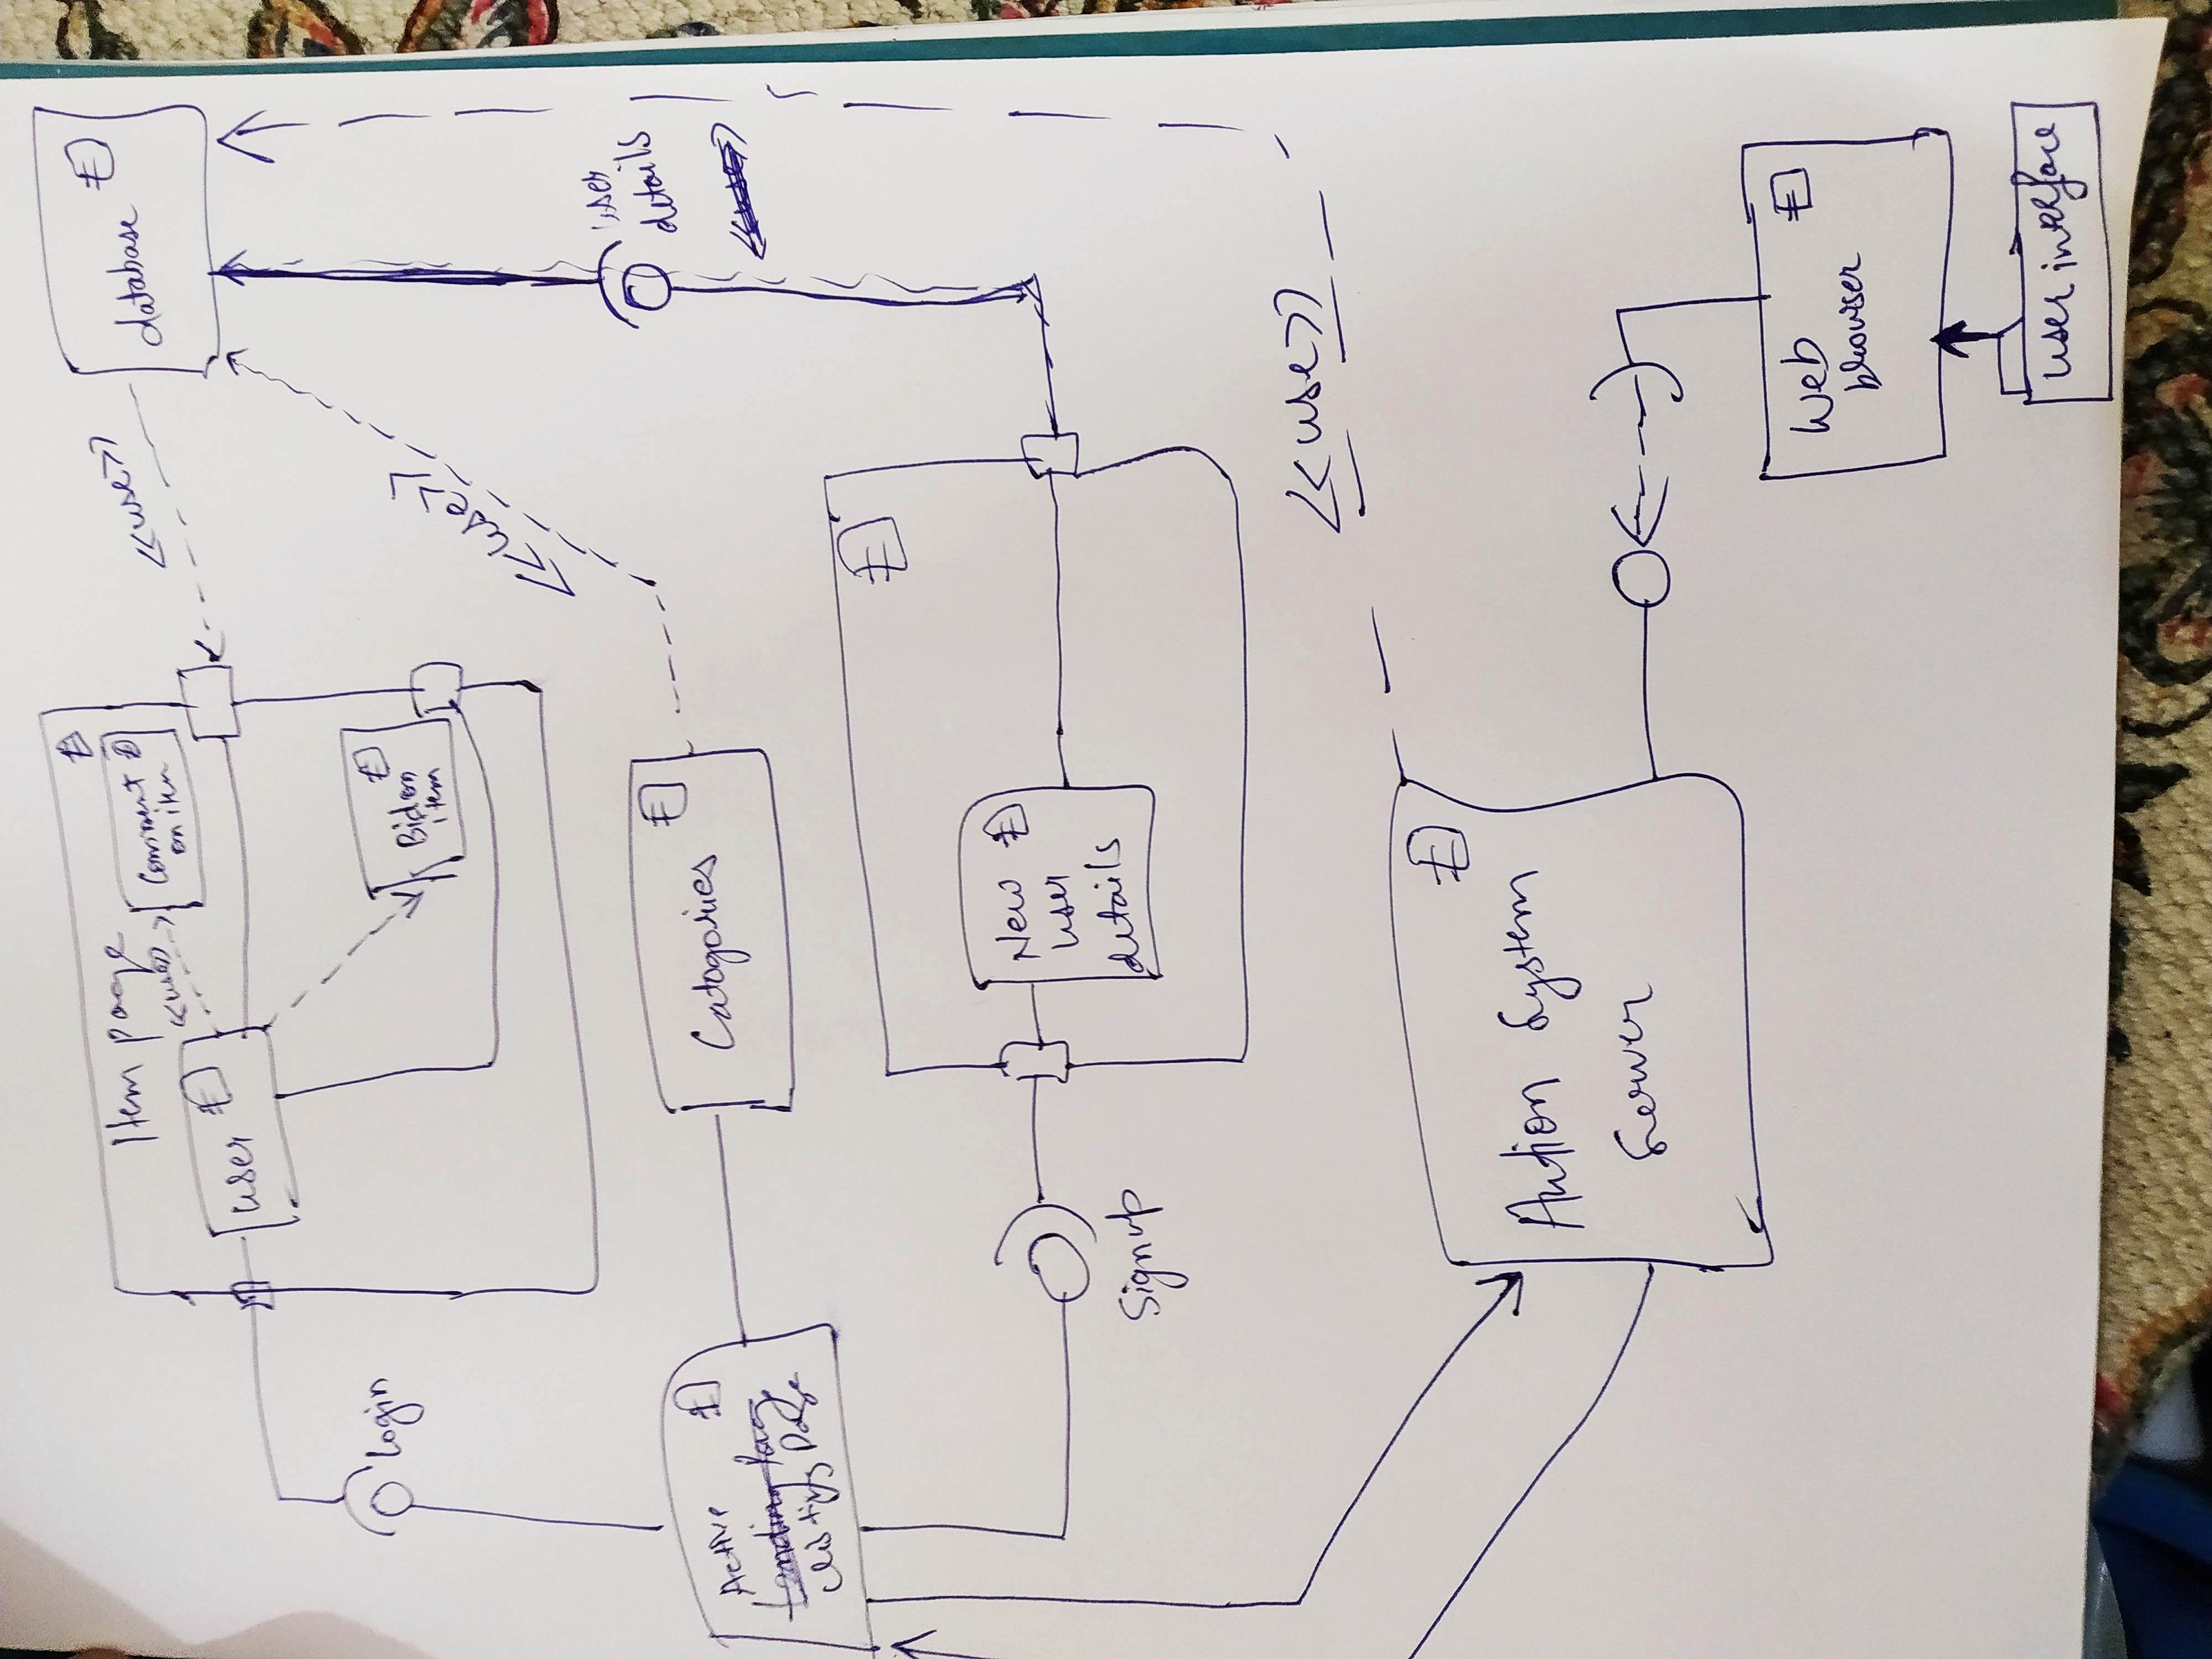 Item page
<<use>>
Comment
on item
user
<<use>>
database
Login
Bid on
item
<<use>>
user
details
Active
Landing Page
Listing Page
Catogories
<<use>>
New
user
details
Signup
<<use>>
Aution System
Server
Web
browser
user interface